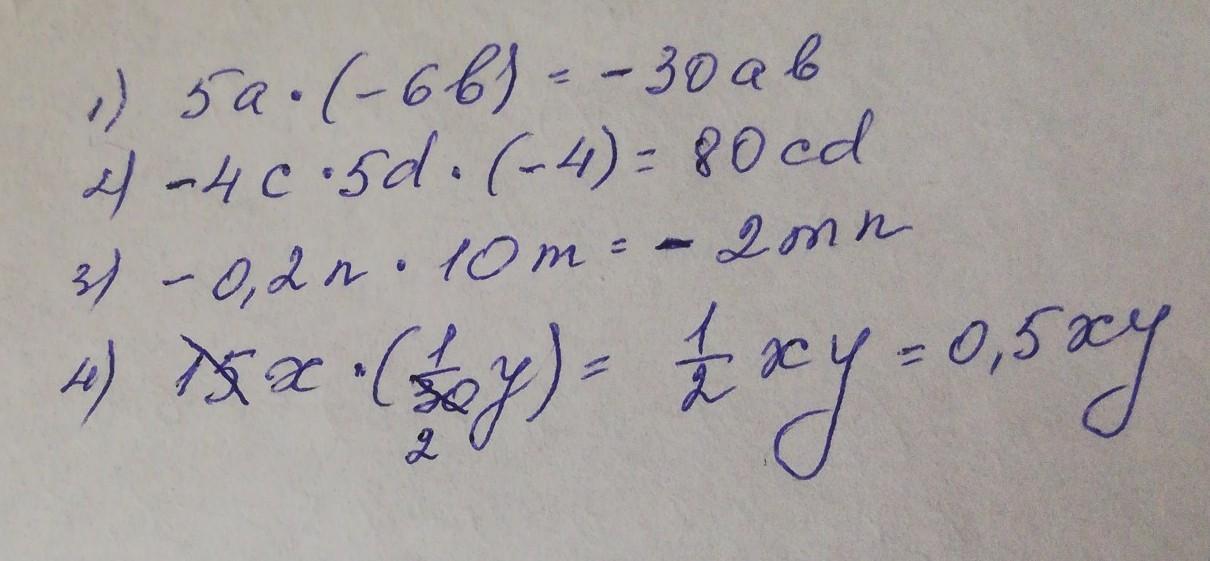 1) 5a · (-6b) = -30ab
2) -4c · 5d · (-4) = 80cd
3) -0,2n · 10m = -2mn
4) 15x · (1/30 y) = 1/2 xy = 0,5xy
2